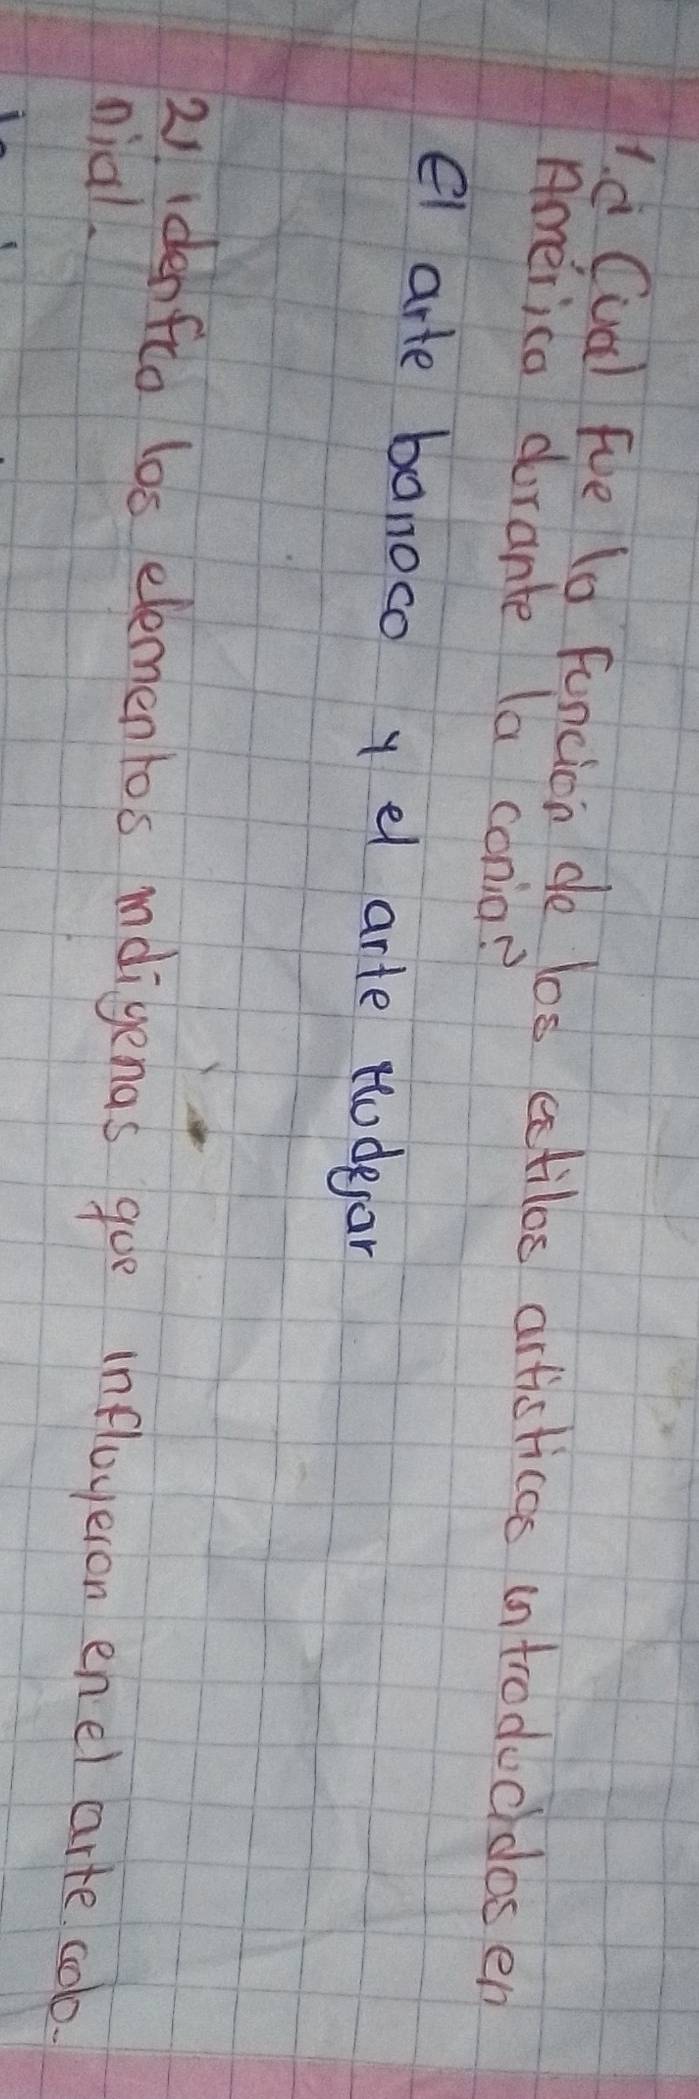 1.¿ Cual fue la función de los estilos artisticos introducidos en
América durante la conia?
El arte barroco y el arte Mudejar
2). idenfica los elementos indigenas que influyeron en el arte colo-
nial.